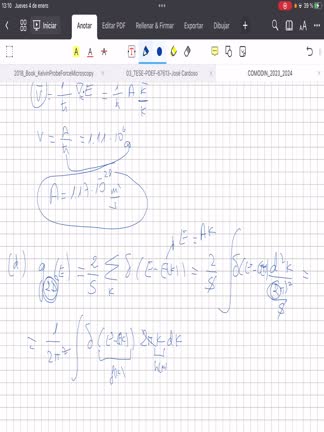 13:10 Jueves 4 de enero
39 %
Anotar Editar PDF Rellenar & Firmar Exportar Dibujar
2018_Book_KelvinProbeForceMicroscopy 03_TESE-PDEF-67613-José Cardoso COMODIN_2023_2024
V = 1/ħ ∇E = 1/ħ A k/k
V = A/ħ = 1.11·10⁶
A = 1.17·10⁻²⁸
E = Ak
(d) g (E) = 2/S ∑ₖ δ(E-E(k)) = 2/S ∫ δ(E-E(k)) d²k/(2π)²/S =
2D
= 1/2π² ∫ δ(E-E(k)) 2πk dk